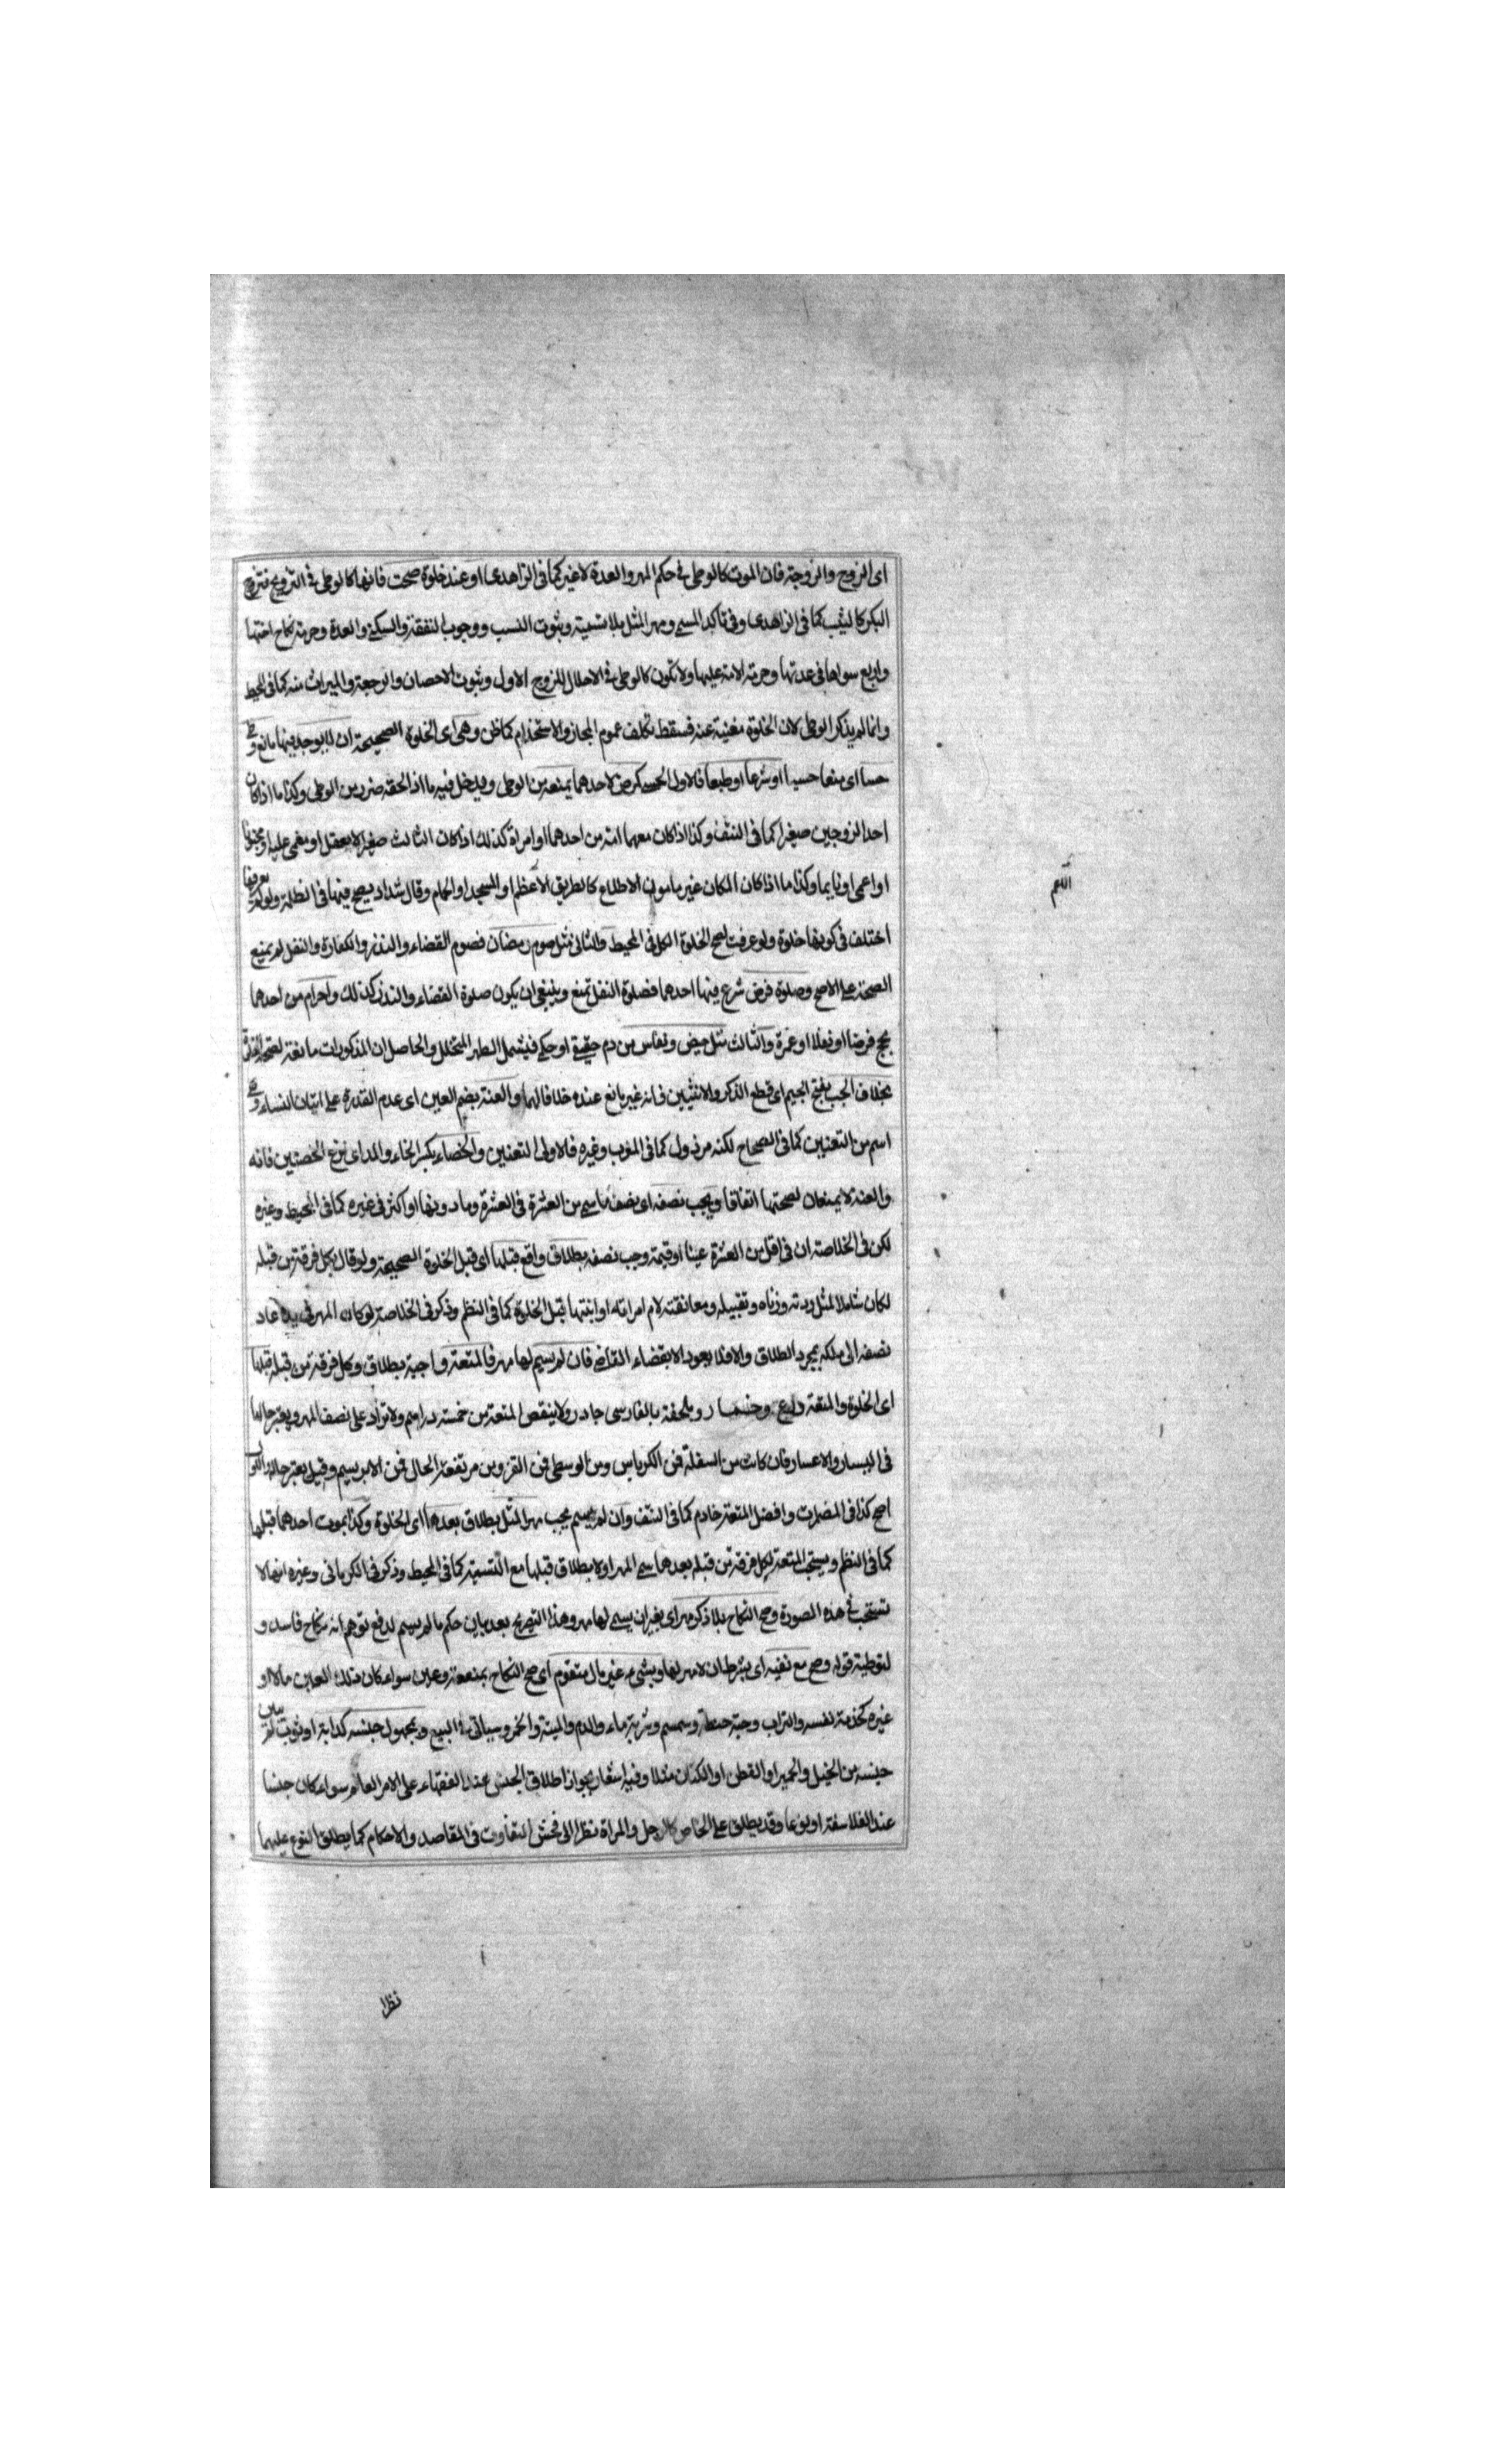 اى الزوج والزوجة فان الموت كالوطى فى حكم المهر والعدة لا غير كما فى الزاهدى او عند خلوة صحت فانها كالوطى فى التزويج فتزوج
البكر كالثيب كما فى الزاهدى وفى تاكيد المسمى ومهر المثل بلا تسمية وثبوت النسب ووجوب النفقة والسكنى والعدة وحرمة نكاح اختها
واربع سواها فى عدتها وحرمة الامة عليها ولا تكون كالوطى فى الاحلال للزوج الاول وثبوت الاحصان والرجعة والميراث منه كما فى المحيط
وانما لم يذكر الوطى لان الخلوة مغنية عنه فسقط تكلف عموم المجاز والاستخدام كما ظن وهى اى الخلوة الصحيحة ان لا يوجد فيها مانع وطى
حسا اى منعا حسيا او شرعا او طبعا فالاول الحسى كمرض لاحدهما يمنعه من الوطى ويدخل فيه ما اذا لحقه ضرر من الوطى وكذا ما اذا كان
احد الزوجين صغيرا كما فى النتف وكذا اذا كان معهما امة من احدهما او امراة كذلك اذا كان الثالث صغيرا لا يعقل او مغمى عليه او مجنونا
او اعمى او نايما وكذا ما اذا كان المكان غير مامون الاطلاع كالطريق الاعظم او المسجد او الحمام وقال شداد يصح فيها فى الظلمة ولو لم يعرفها
اختلف فى كونها خلوة ولو عرفت لصح الخلوة الكل فى المحيط والثانى مثل صوم رمضان فصوم القضاء والنذر والكفارة والنفل لم يمنع
الصحة على الاصح وصلوة فرض شرع فيها احدهما فصلوة النفل تمنع وينبغى ان يكون صلوة القضاء والنذر كذلك واحرام من احدهما
بحج فرضا او نفلا او عمرة والثالث مثل حيض ونفاس من دم حقيقى او حكمى فيشمل الطهر المتخلل والحاصل ان المذكورات مانعة لصحة
بخلاف الجب بفتح الجيم اى قطع الذكر والانثيين فانه غير مانع عنده خلافا لهما والعنة بضم العين اى عدم القدرة على اتيان النساء وهى
اسم من التعنين كما فى الصحاح لكنه مرذول كما فى المغرب وغيره فالاولى التعنين والخصاء بكسر الخاء والمد اى نزع الخصيتين فانه
والعنة لا يمنعان لصحتها اتفاقا ويجب نصفه اى نصف ما سمى من العشرة فى العشرة وما دونها او اكثر فى غيره كما فى المحيط وغيره
لكن فى الخلاصة ان فى اقل من العشرة عينا او قيمة وجب نصفه بطلاق واقع قبلها اى قبل الخلوة الصحيحة ولو قال بكل فرقة من قبله
لكان شاملا لمثل ردته وزناه وتقبيله ومعانقته لام امراته او ابنتها قبل الخلوة كما فى النظم وذكر فى الخلاصة لو كان المهر فى يده عاد
نصفه الى ملكه بمجرد الطلاق والا فلا يعود الا بقضاء القاضى فان لم يسم لها مهر فالمتعة واجبة بطلاق وكل فرقة من قبله قبلها
اى الخلوة والمتعة درع وخمار وملحفة بالفارسى جادر ولا ينقص المتعة من خمسة دراهم ولا تزاد على نصف المهر ويعتبر حالها
فى اليسار والاعسار فان كانت من السفلة فمن الكرباس ومن الوسطى فمن القز ومن مرتفعة الحال فمن الابريسم وقيل يعتبر حاله والاول
اصح كذا فى المضمرات وافضل المتعة خادم كما فى النتف وان لم يسم يجب مهر المثل بطلاق بعدها اى الخلوة وكذا بموت احدهما قبلها
كما فى النظم ويستحب المتعة لكل فرقة من قبله بعدها سمى المهر او لا بطلاق قبلها مع التسمية كما فى المحيط وذكر فى الكرمانى وغيره انها لا
تستحب فى هذه الصورة وصح النكاح بلا ذكر مهر اى بغير ان يسمى لها مهر وهذا التصريح بعد بيان حكم ما لم يسم لدفع توهم انه نكاح فاسد و
لتوطية قوله وصح مع نفيه اى بشرط ان لا مهر لها وبشىء غير مال متقوم اى صح النكاح بمنفعة وعين سواء كان ذلك العين مالا او
غيره كخدمة نفسه والتراب وحبة حنطة وسمسم وشربة ماء والدم والميتة والخمر وسياتى فى البيع وبمجهول جنسه كدابة او ثوب لم يبين
جنسه من الخيل والحمير او القطن او الكتان مثلا وفيه اشعار بجواز اطلاق الجنس عند الفقهاء على الامر العام سواء كان جنسا
عند الفلاسفة او نوعا وقد يطلق على الخاص كالرجل والمراة نظرا الى فحش التفاوت فى المقاصد والاحكام كما يطلق النوع عليهما
نظرا